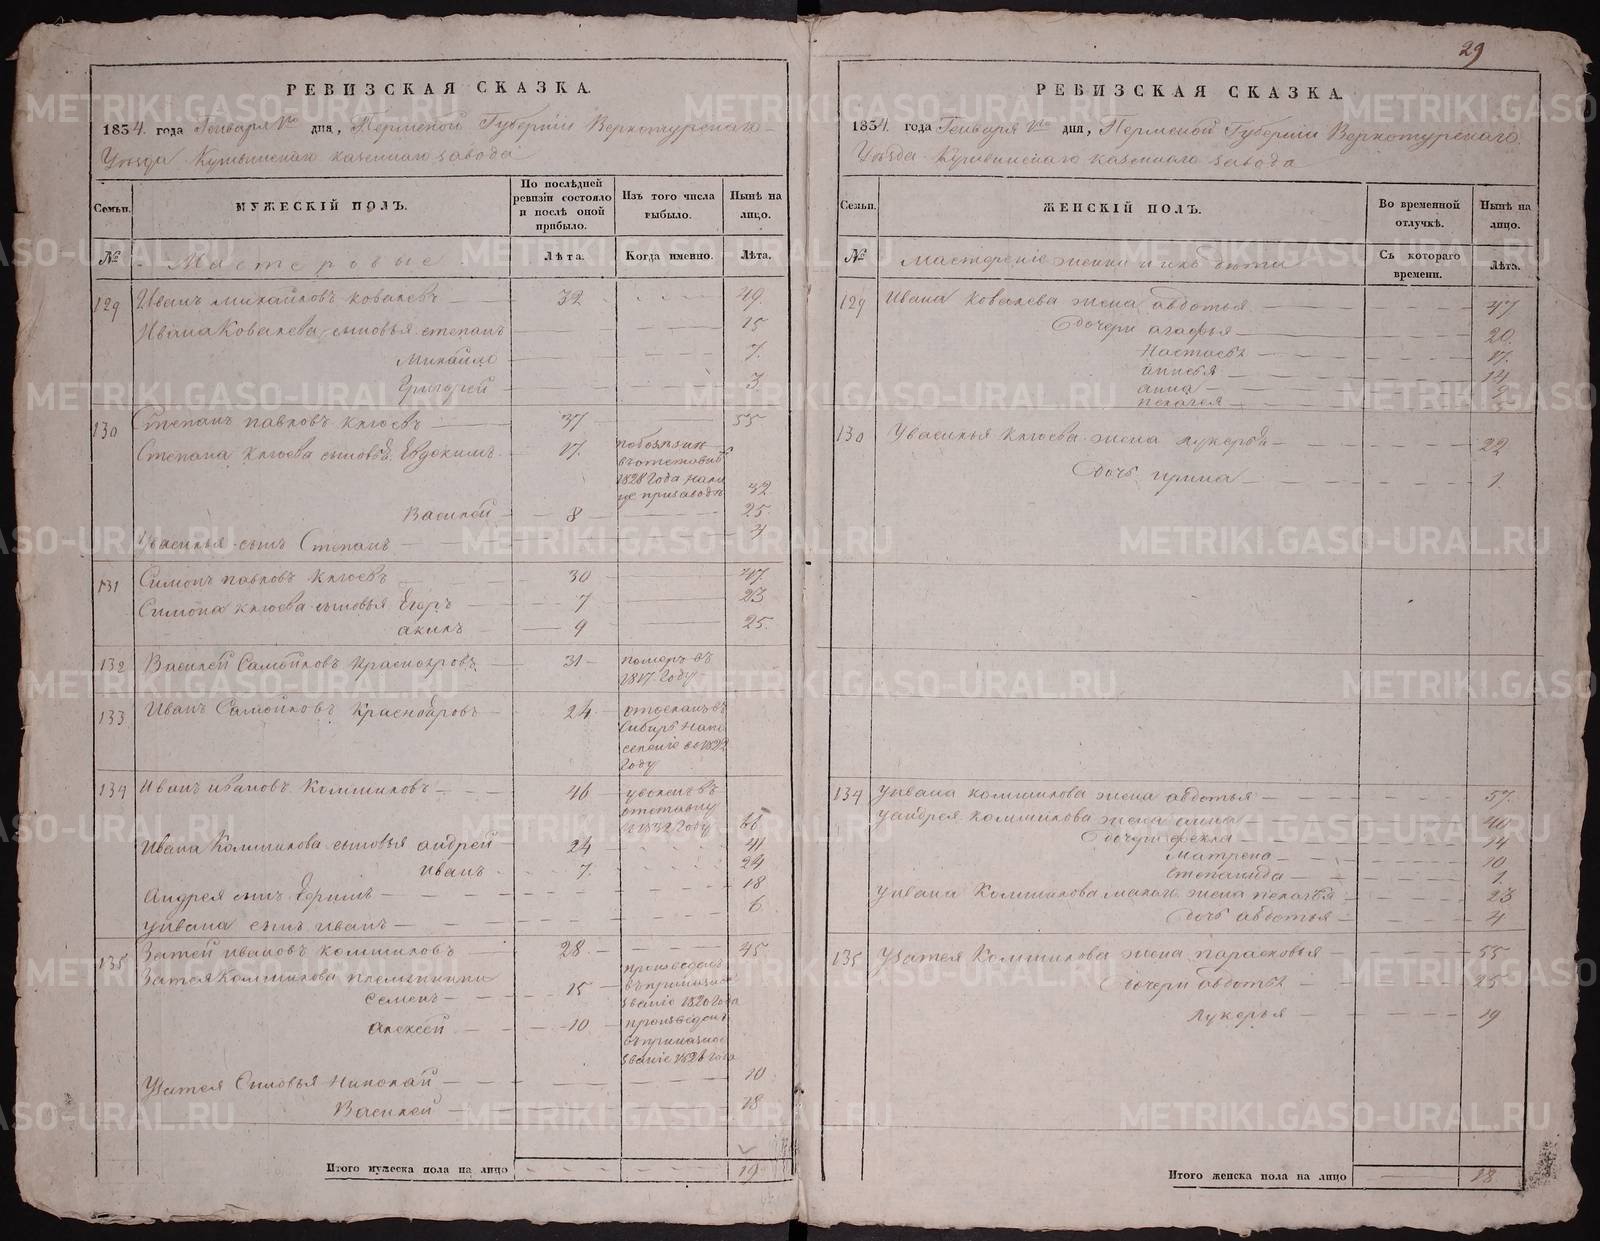 29
РЕВИЗСКАЯ СКАЗКА.
1834. года Генваря дня, Пермской Губернiи Верхотурскаго
Уезда Кушвинскаго казеннаго завода
Семьи.
МУЖЕСКIЙ ПОЛЪ.
По послѣдней ревизiи состояло и послѣ оной прибыло.
Изъ того числа выбыло.
Нынѣ на лицо.
№
Мастеровые
Лѣта.
Когда именно.
Лѣта.
129 Иванъ михайловъ ковалевъ 32 49.
Ивана Ковалева сыновья степанъ 15
Михайло 7.
Григорей 3.
130 Степанъ павловъ клюевъ 37 55
Степана клюева сыновья Евдокимъ 17.
1828 года
32
Василей 8 25.
Увасилья сынъ Степанъ
131 Симонъ павловъ клюевъ 30 47.
Симона клюева сыновья Егоръ 7 23
акилъ 9 25.
132 Василей Самойловъ Краснояровъ 31 померъ въ
1817 году
133 Иванъ Самойловъ Краснояровъ 24 отосланъ въ
Сибирь на по
селенiе во
году
134 Иванъ ивановъ Комшиловъ 46 уволенъ въ
отставку
году
Ивана Комшилова сыновья андрей 24 41
иванъ 7. 24
Андрея сынъ 18
уивана сынъ иванъ 6
135 Затей ивановъ комшиловъ 28. 45
Затея Комшилова племянники
семенъ 15 произведенъ
званiе 1820 года
алексей 10 произведенъ
званiе 1828 года
Узатея Сыновья николай 10
Василей 18
Итого мужеска пола на лицо 19
РЕВИЗСКАЯ СКАЗКА.
1834. года Генваря дня, Пермской Губернiи Верхотурскаго
Уезда Кушвинскаго казеннаго завода
Семьи.
ЖЕНСКIЙ ПОЛЪ.
Во временной отлучкѣ.
Нынѣ на лицо.
№
женки и ихъ дети
Съ котораго времени.
Лѣта.
129 Ивана ковалева жена авдотья 47
дочери агафья 20.
Настасья 17.
14
анна
пелагея
130 Увасилья клюева жена лукерья 22
дочь ирина 1.
134 Уивана комшилова жена авдотья 57.
уандрея комшилова жена анна 40
дочери фекла 14
матрена 10
степанида 1
уивана Комшилова жена пелагея 23
дочь авдотья 4
135 Узатея Комшилова жена парасковья 55
дочери авдотья 25
лукерья 19
Итого женска пола на лицо 18
METRIKI.GASO-URAL.RU